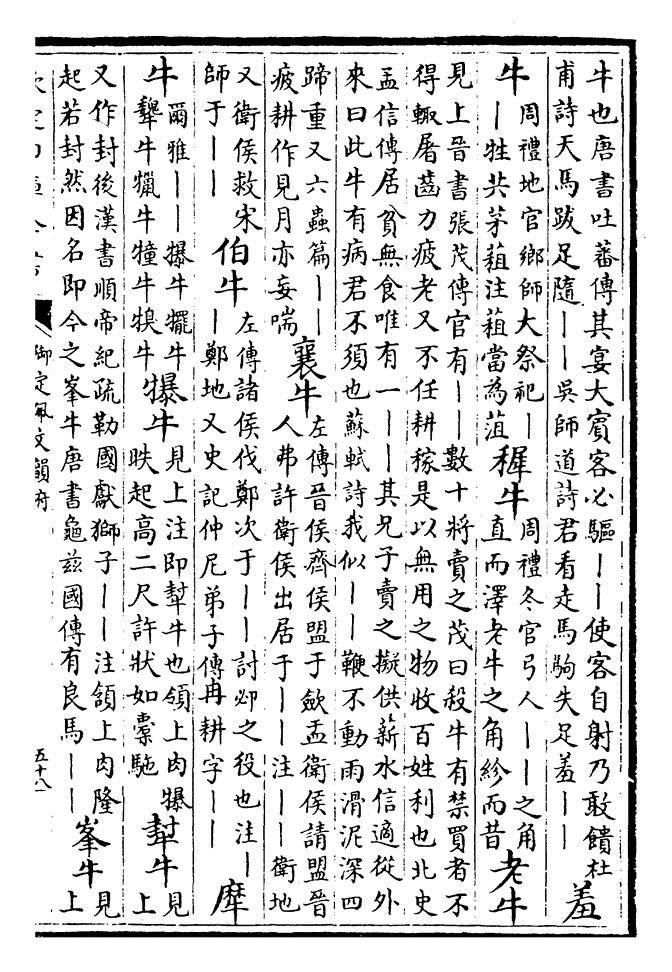 牛也唐書吐蕃傳其宴大賓客必驅——使客自射乃敢饋杜
甫詩天馬跋足隨——吳師道詩君看走馬駒失足羞——
羞
牛
周禮地官鄉師大祭祀—
—牲共茅蒩注蒩當為菹
穉牛
周禮冬官弓人——之角
直而澤老牛之角紾而昔
老牛
見上晉書張茂傳官有——數十將賣之茂曰殺牛有禁買者不
得輒屠齒力疲老又不任耕稼是以無用之物收百姓利也北史
孟信傳居貧無食唯有一——其兄子賣之擬供薪水信適從外
來曰此牛有病君不須也蘇軾詩我似——鞭不動雨滑泥深四
蹄重又六蟲篇——
疲耕作見月亦妄喘
襄牛
左傳晉侯齊侯盟于歛盂衛侯請盟晉
人弗許衛侯出居于——注——衛地
又衛侯救宋
師于——
伯牛
左傳諸侯伐鄭次于——討邲之役也注—
—鄭地又史記仲尼弟子傳冉耕字——
犘
牛
爾雅——犦牛犤牛
犩牛犣牛犝牛犑牛
犦牛
見上注即犎牛也領上肉犦
胅起高二尺許狀如橐駞
犎牛
見
上
又作封後漢書順帝紀疏勒國獻獅子——注領上肉隆
起若封然因名即今之峯牛唐書龜茲國傳有良馬——
峯牛
見
上
欽定四庫全書
御定佩文韻府
五十八